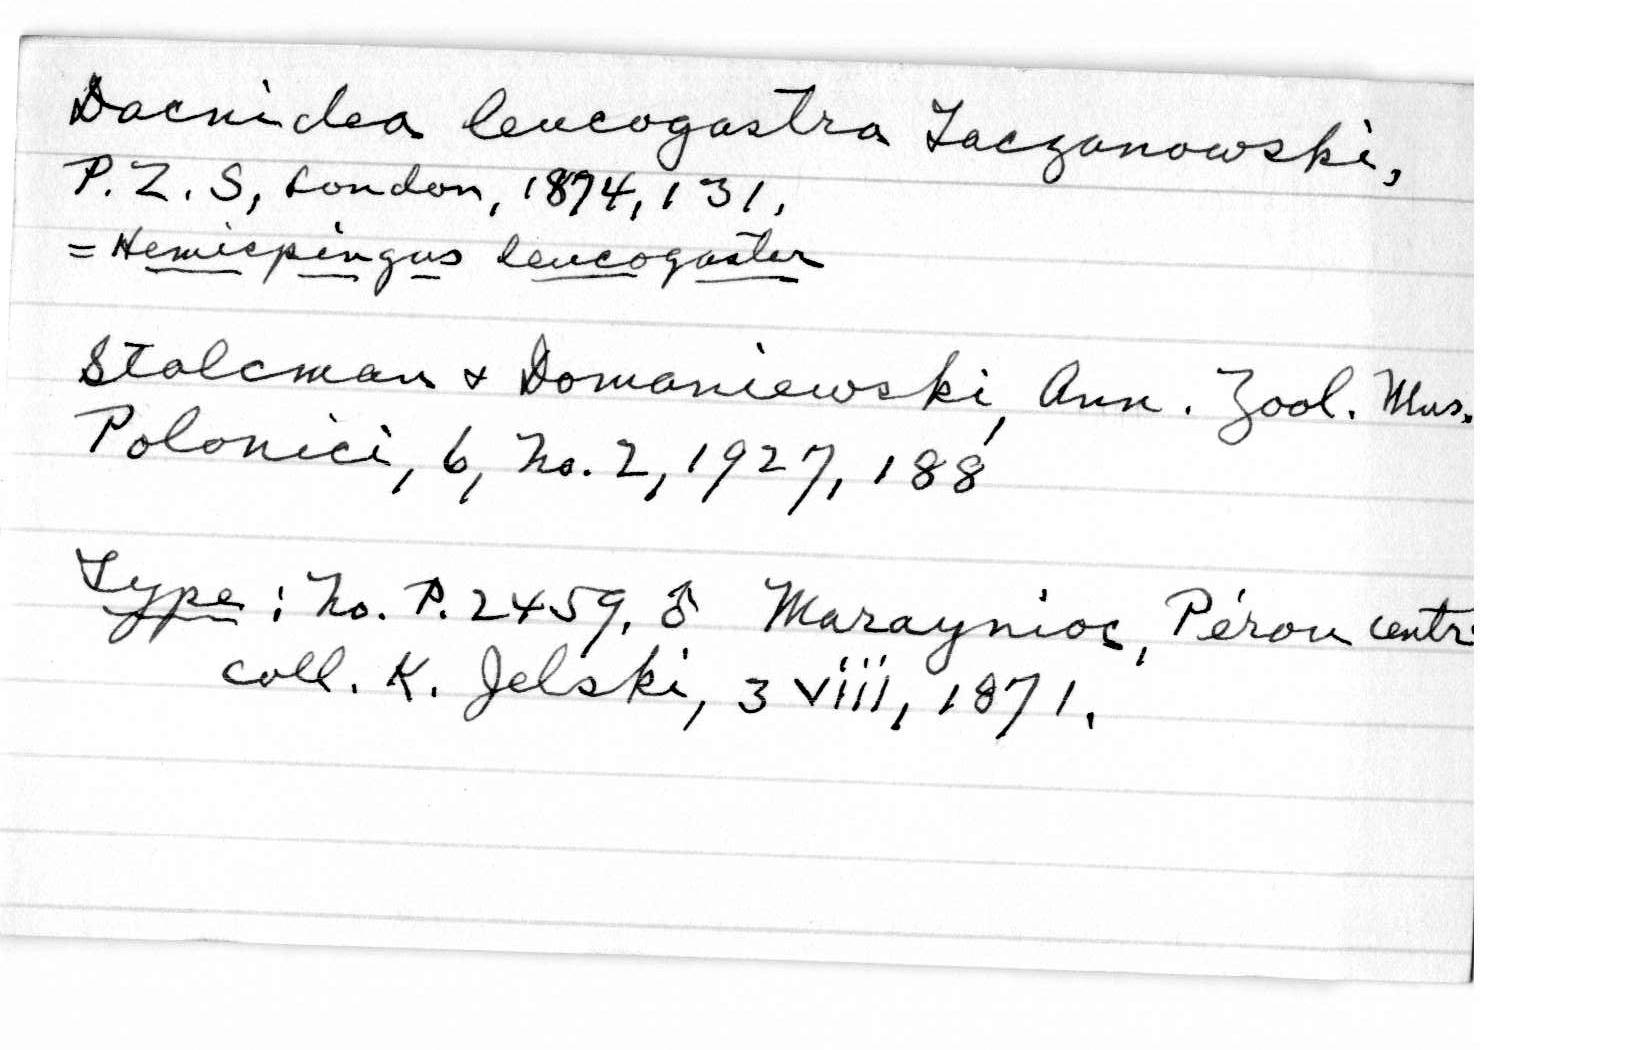 Dacnidea leucogastra Taczanowski,
P. Z. S, London, 1874, 131,
= Hemispingus leucogaster
Stolcman & Domaniewski, Ann. Zool. Mus.
Polonici, 6, No. 2, 1927, 188
Type: No. P. 2459, ♂ Maraynioc, Pérou centr.
coll. K. Jelski, 3 viii, 1871.